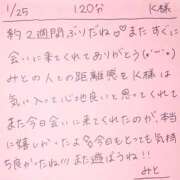 1/25 120分 K様
約2週間ぶりだね♡またすぐに
会いに来てくれてありがとう(˙ᵕ˙)
みとの人との距離感をK様は
気に入って心地良いと思ってくれてて
また今日会いに来てくれたのが、本当
に嬉しかったよ今日もとっても気持
ち良かったね!!!また遊ぼうね!!
みと